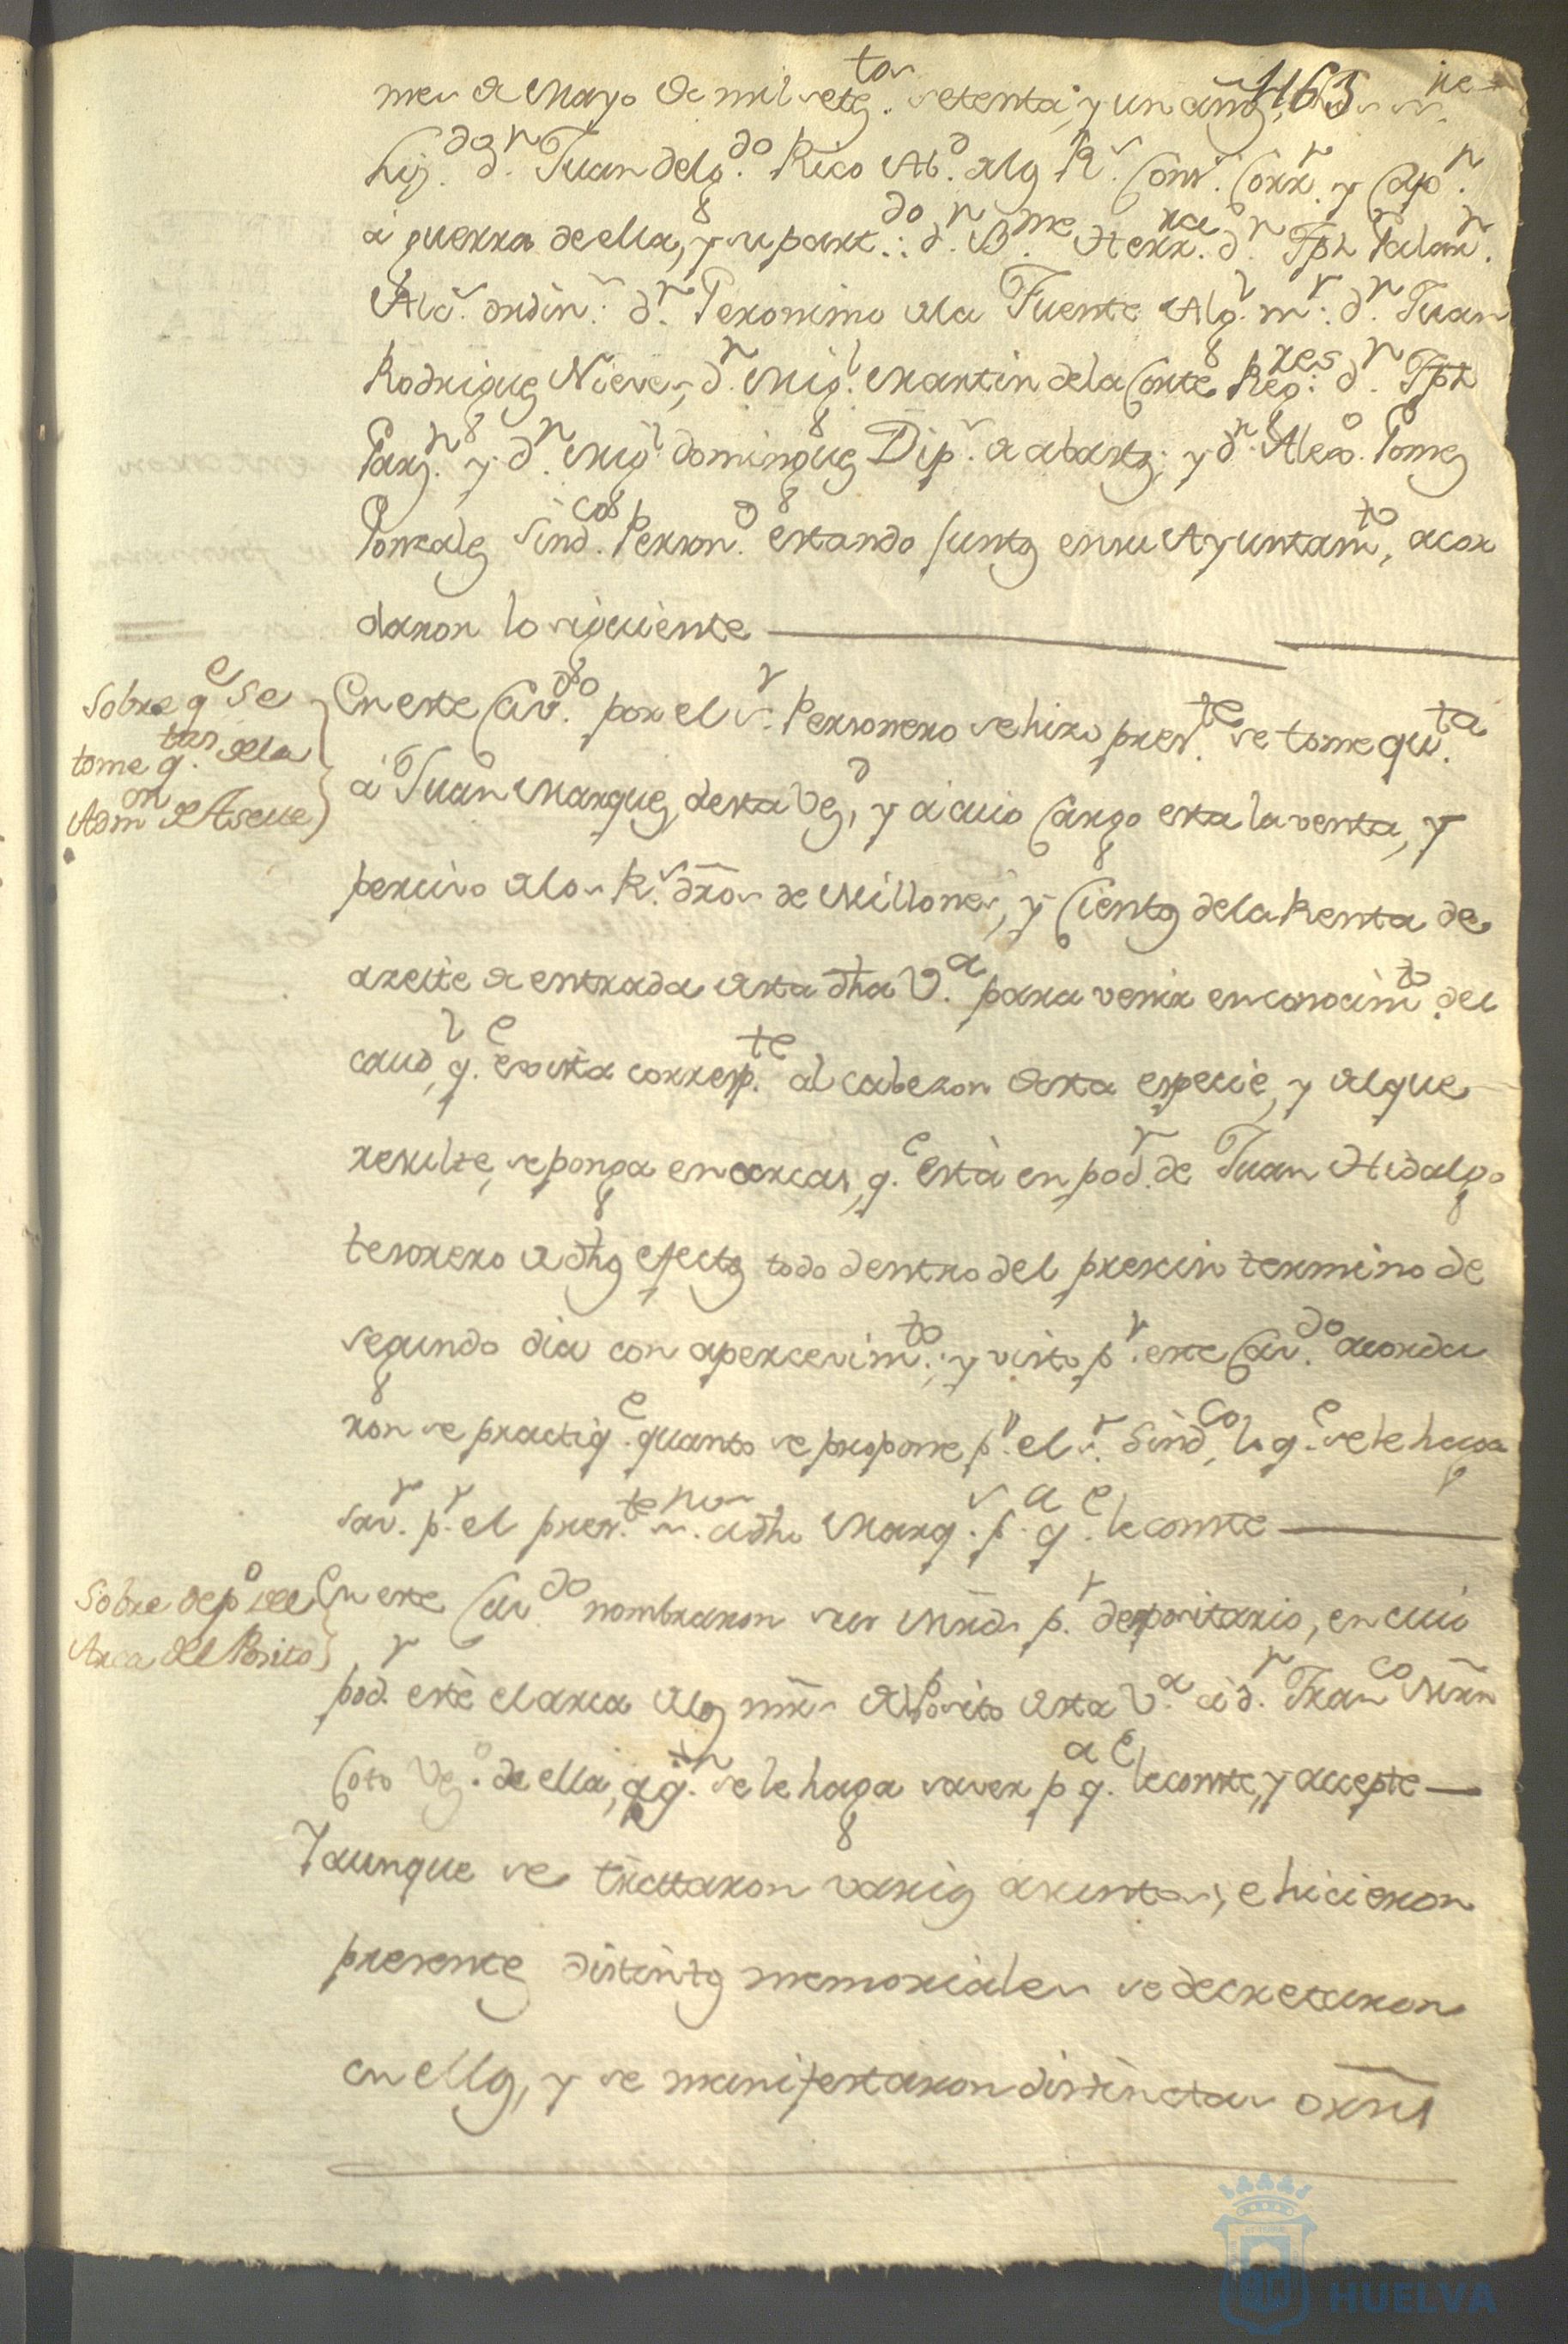 mes de Mayo de mil setez.tos setenta, y un años, los ss.res
1163
Liz.do d.n Juan Delg.do Rico Ab.do de los R.s Cons.s Corr.r y Cap.n
à guerra de ella, y su part.do: d.n B.me Herr.ra d.n Jph Galan.
Alc.s ordin.s d.n Geronimo de la Fuente Alg.l m.r: d.n Juan
Rodriguez Nieves, d.n Mig.l Martin de la Corte Reg.res: d.n Jph
Garz.n y d.n Mig.l Dominguez Dip.s de abastos; y d.n Alexo. Gomez
Gonzalez Sind.co Person.o estando juntos en su Ayuntam.to, acor
daron lo siguiente
Sobre q.e se
tome q.tas de la
Adm.on de Aseite
En este Cav.do por el s.r Personero se hizo pres.te se tome qu.ta
à Juan Marquez, de esta Vez.d, y à cuio Cargo esta la venta, y
percivo de los R.s dros de Millones, y Cientos de la Renta de
azeite de entrada de esta dha V.a para venir en conocim.to del
caud.l q.e exista corresp.te al cabezon de esta especie, y el que
resulte, se ponga en arcas, q.e està en pod.r de Juan Hidalgo
tesorero de dhos efectos todo dentro del preciso termino de
segundo dia con apercevim.to; y visto p.r este Cav.do acorda
ron se practiq.e quanto se propone p.r el s.r Sind.co, lo q.e se le haga
sav.r p.r el pres.te ss.no a dho Marq.s p.a q.e le conste
Sobre dep.o del
Arca del Posito
En este Cav.do nombraron sus Mrds p.r depositario, en cuio
pod.r estè el arca de los mrs del Posito de esta V.a à d.n Fran.co Mrn
Coto Vez.o de ella, a q.n se le haga saver p.a q.e le conste, y accepte
Y aunque se trattaron varios asuntos, e hicieron
presentes distintos memoriales se decretaron
en ellos, y se manifestaron distinctas ornes
HUELVA